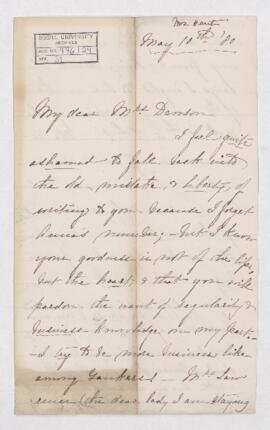 McGILL UNIVERSITY
ARCHIVES
ACC. NO.
REF.
May 10th '80
My dear Mrs Dawson
I feel quite
ashamed to fall back into
the old mistake, & liberty, of
writing to you because I forget
Anna's number; - but I know
your goodness is not of the lips,
but the heart, & that you will
pardon the want of regularity &
business-knowledge on my part.
- I try to be more business like
among Yankees - Mrs Law
rence (the dear lady I am staying